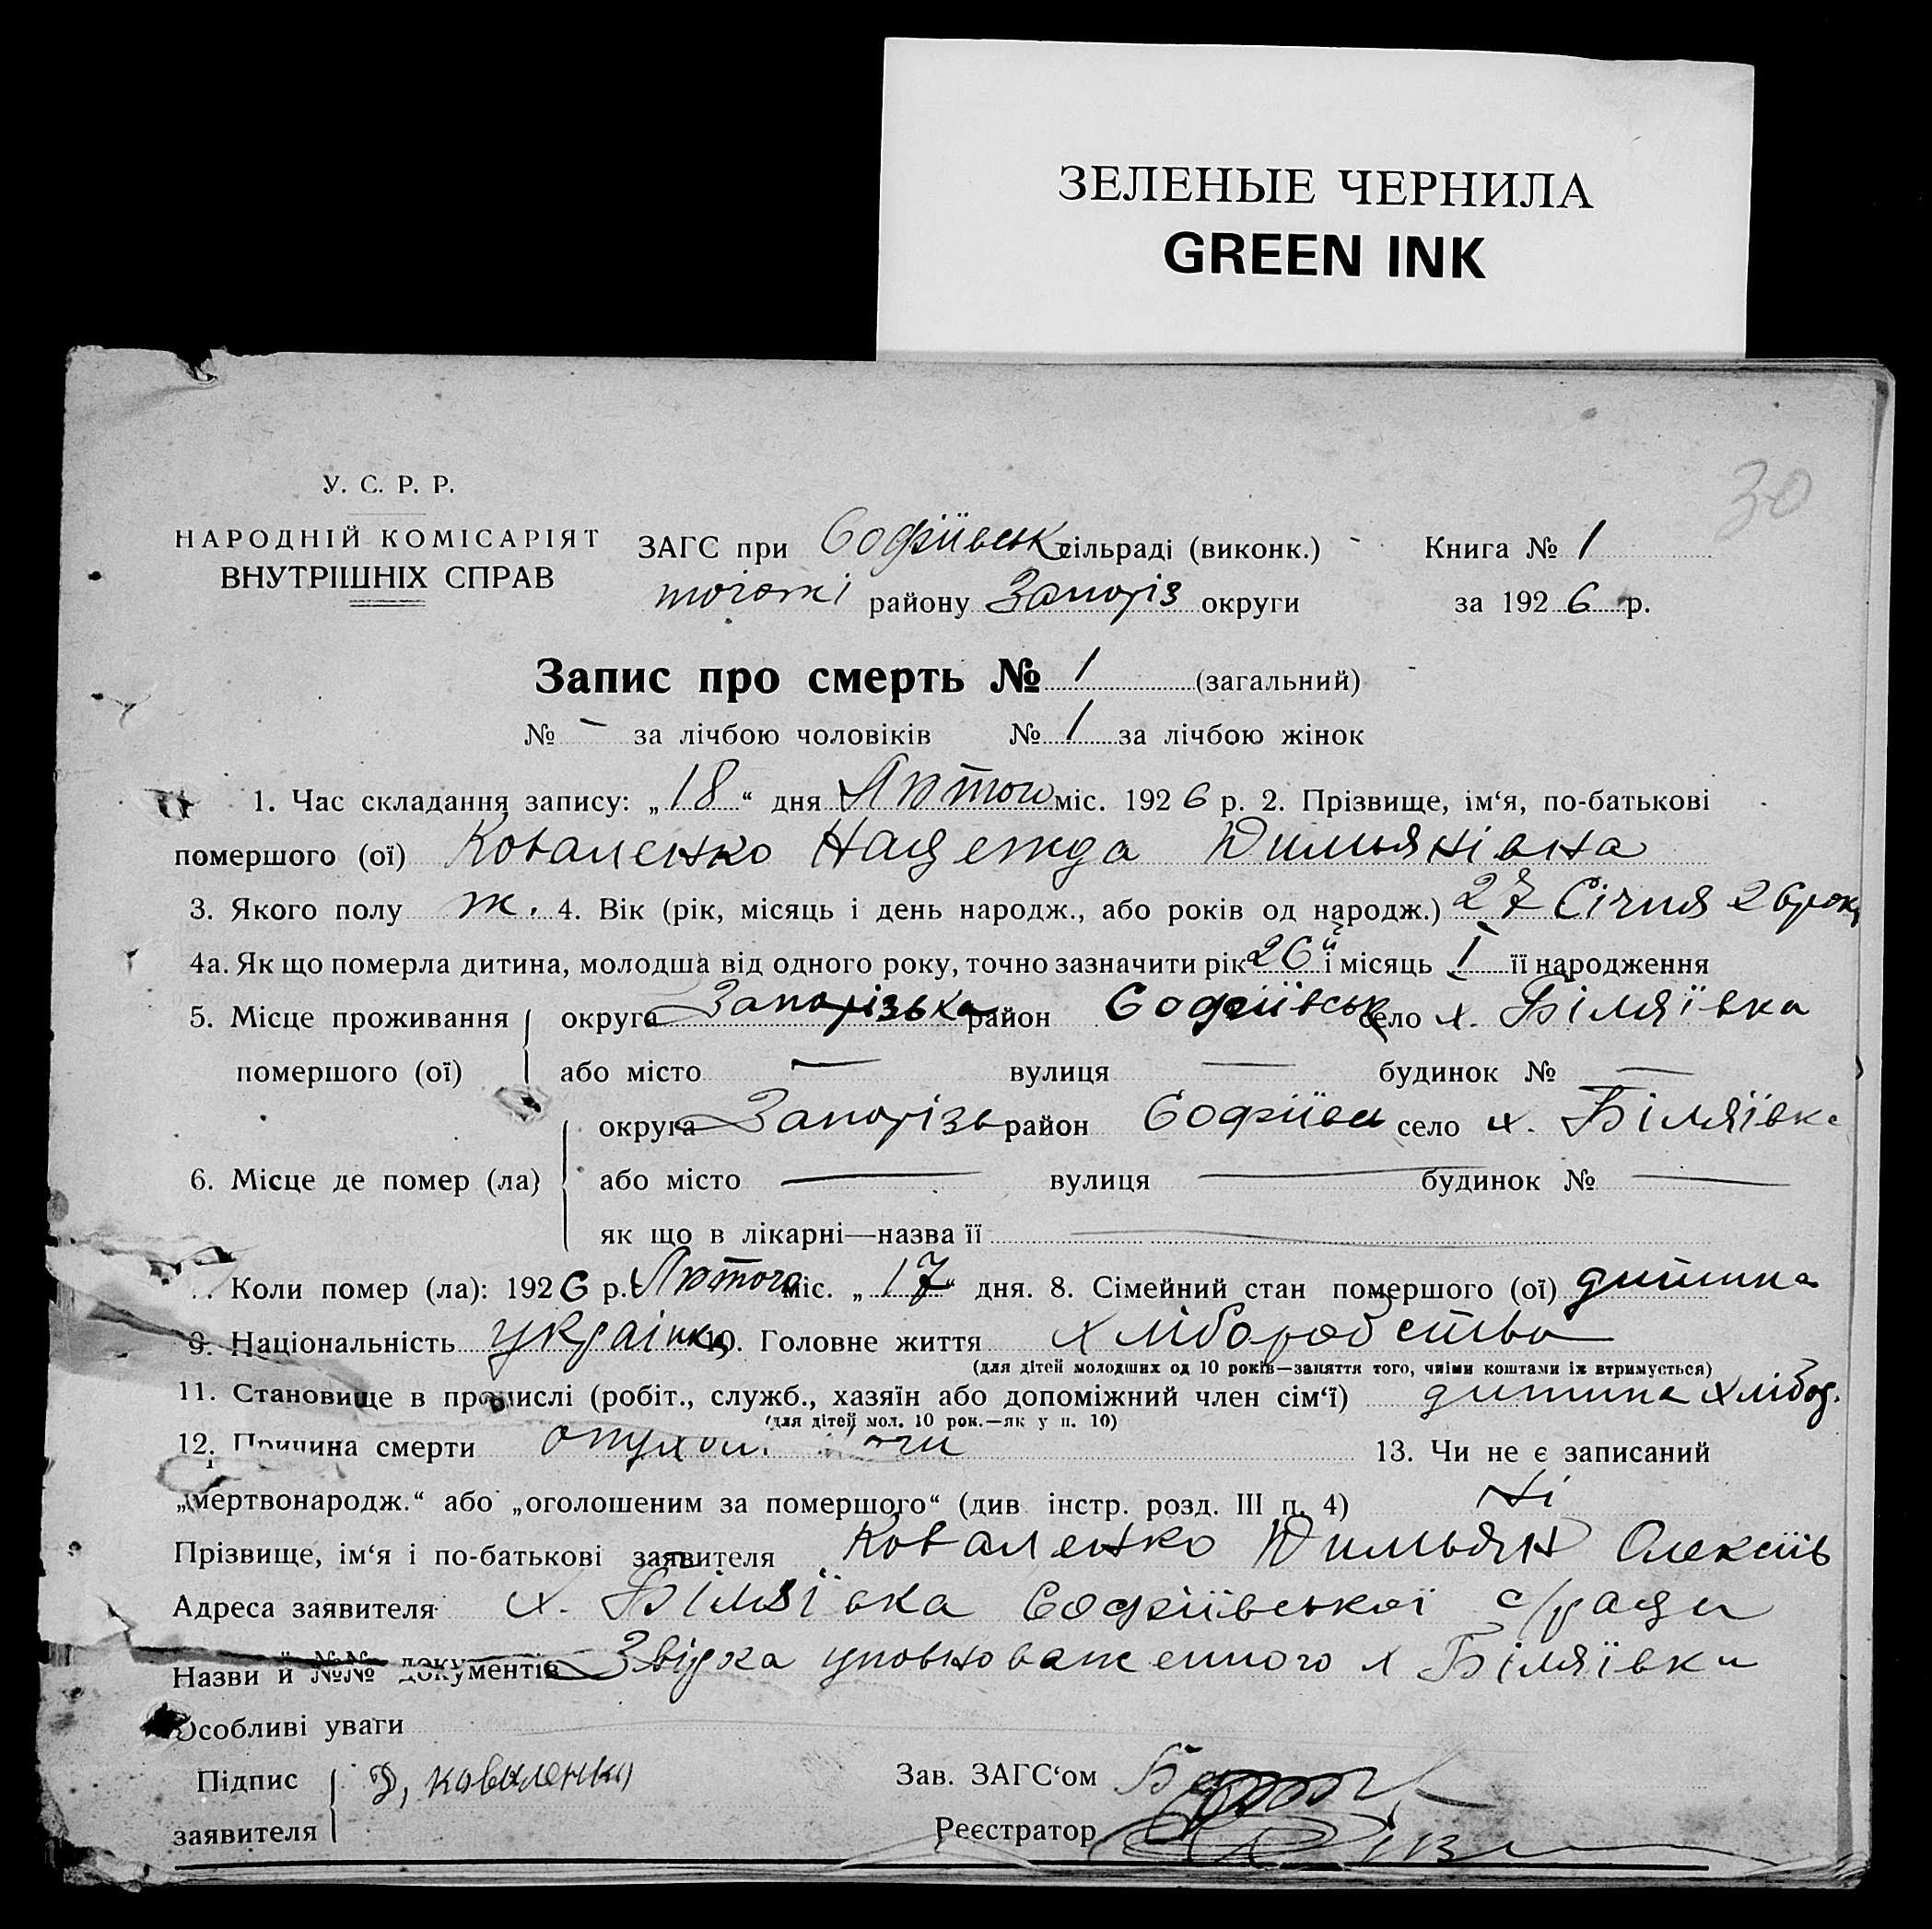 ЗЕЛЕНЫЕ ЧЕРНИЛА
GREEN INK
30
У. С. Р. Р.
НАРОДНІЙ КОМІСАРІЯТ
ВНУТРІШНІХ СПРАВ
ЗАГС при Софіївськ сільраді (виконк.)
району Запоріз округи
Книга № 1
за 1926 р.
Запис про смерть № 1 (загальний)
№ - за лічбою чоловіків № 1 за лічбою жінок
1. Час складання запису: „18“ дня Лютого міс. 1926 р. 2. Прізвище, ім‘я, по-батькові
помершого (ої) Коваленко Надежда Димьянівна
3. Якого полу ж. 4. Вік (рік, місяць і день народж., або років од народж.) 27 Січня 26 року
4а. Як що померла дитина, молодша від одного року, точно зазначити рік 26 й і місяць I її народження
5. Місце проживання округа Запорізька район Софіївськ село х. Біляївка
помершого (ої) або місто — вулиця — будинок № —
округа Запорізь район Софіївсь село х. Біляївка
6. Місце де помер (ла) або місто — вулиця — будинок № —
як що в лікарні—назва її —
Коли помер (ла): 1926 р. Лютого міс. „17“ дня. 8. Сімейний стан помершого (ої) дитина
9. Національність українка 10. Головне життя хліборобство
(для дітей молодших од 10 років—заняття того, чиїми коштами їх втримується)
11. Становище в промислі (робіт., служб., хазяїн або допоміжний член сім‘ї) дитина хлібор.
(для дітей мол. 10 рок.—як у п. 10)
12. Причина смерти 13. Чи не є записаний
„мертвонародж.“ або „оголошеним за помершого“ (див інстр. розд. III п. 4) Ні
Прізвище, ім‘я і по-батькові заявителя Коваленко Димьян Олексіїв
Адреса заявителя х. Біляївка Софіївської с/ради
Назви й №№ документів Звідка уповноваженного х Біляївки
Особливі уваги
Підпис заявителя Д, Коваленко
Зав. ЗАГС‘ом
Реєстратор